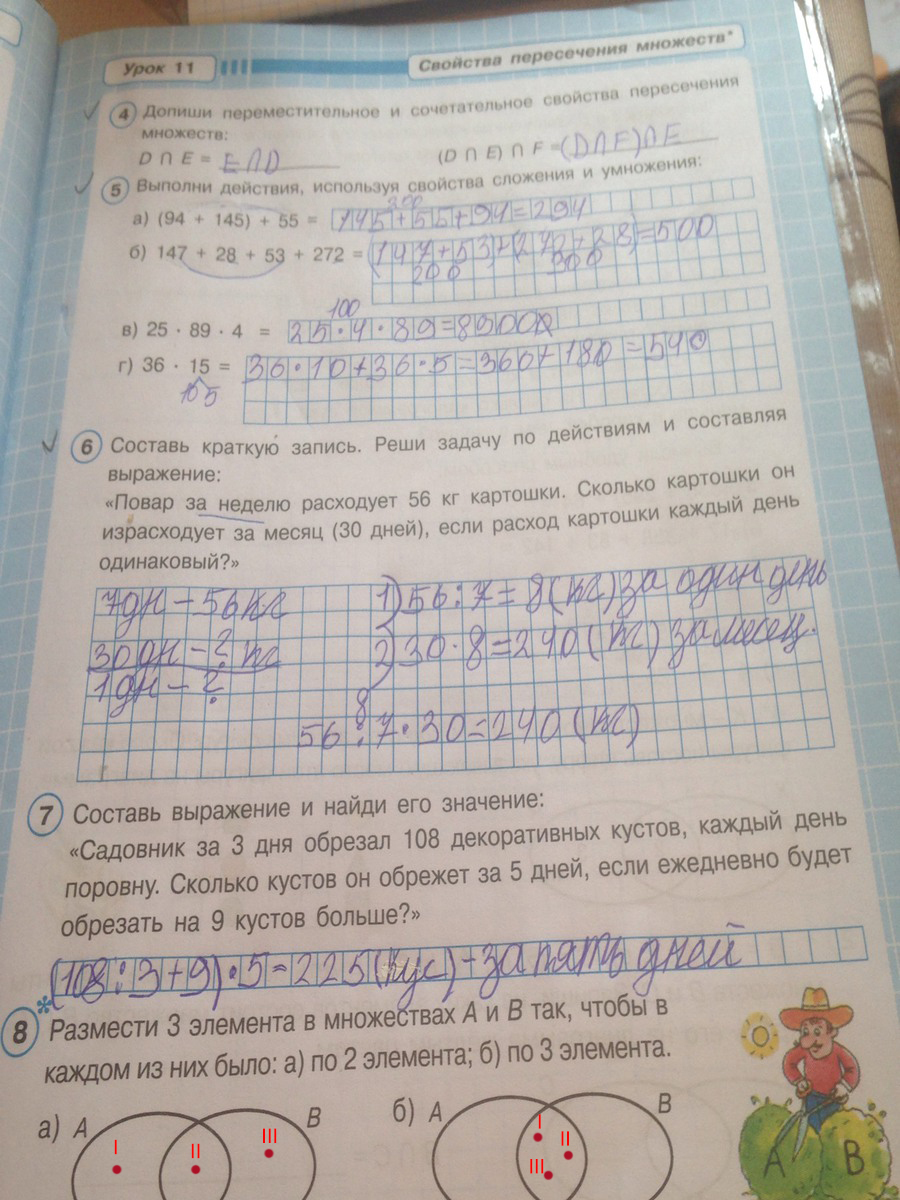 Урок 11
Свойства пересечения множеств*
4 Допиши переместительное и сочетательное свойства пересечения
множеств:
D ∩ E = E∩D (D ∩ E) ∩ F = (D∩F)∩E
5 Выполни действия, используя свойства сложения и умножения:
200
а) (94 + 145) + 55 = 145+55+94=294
б) 147 + 28 + 53 + 272 = (147+53)+(272+28)=500
200 300
100
в) 25 · 89 · 4 = 25·4·89=8900
г) 36 · 15 = 36·10+36·5=360+180=540
10 5
6 Составь краткую запись. Реши задачу по действиям и составляя
выражение:
«Повар за неделю расходует 56 кг картошки. Сколько картошки он
израсходует за месяц (30 дней), если расход картошки каждый день
одинаковый?»
7дн – 56кг 1) 56:7=8(кг) за один день
30дн – ? кг 2) 30·8=240(кг) за месец.
1дн – ?
8
56:7·30=240(кг)
7 Составь выражение и найди его значение:
«Садовник за 3 дня обрезал 108 декоративных кустов, каждый день
поровну. Сколько кустов он обрежет за 5 дней, если ежедневно будет
обрезать на 9 кустов больше?»
(108:3+9)·5=225(кус) – за пять дней
8* Размести 3 элемента в множествах A и B так, чтобы в
каждом из них было: а) по 2 элемента; б) по 3 элемента.
а) A B б) A B
I II III I II III
A B